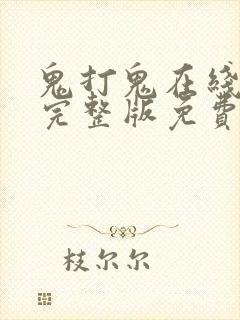 鬼打鬼在綫
完整版免費
枝尔尔